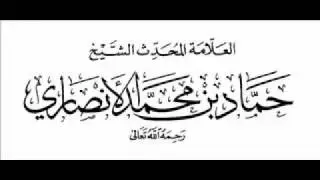 العلامة المحدث الشيخ
حماد بن محمد الأنصاري
رحمه الله تعالى